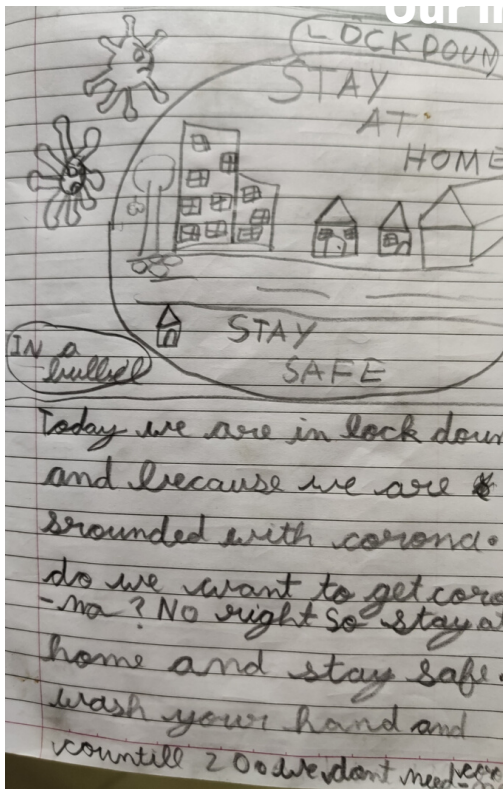 Our
LOCKDOUN
STAY
AT
HOME
STAY
SAFE
IN a
Today we are in lock doun
and because we are
srounded with corona.
do we want to get coro
-na? No right So stay at
home and stay safe.
wash your hand and
countill 20 we dont need